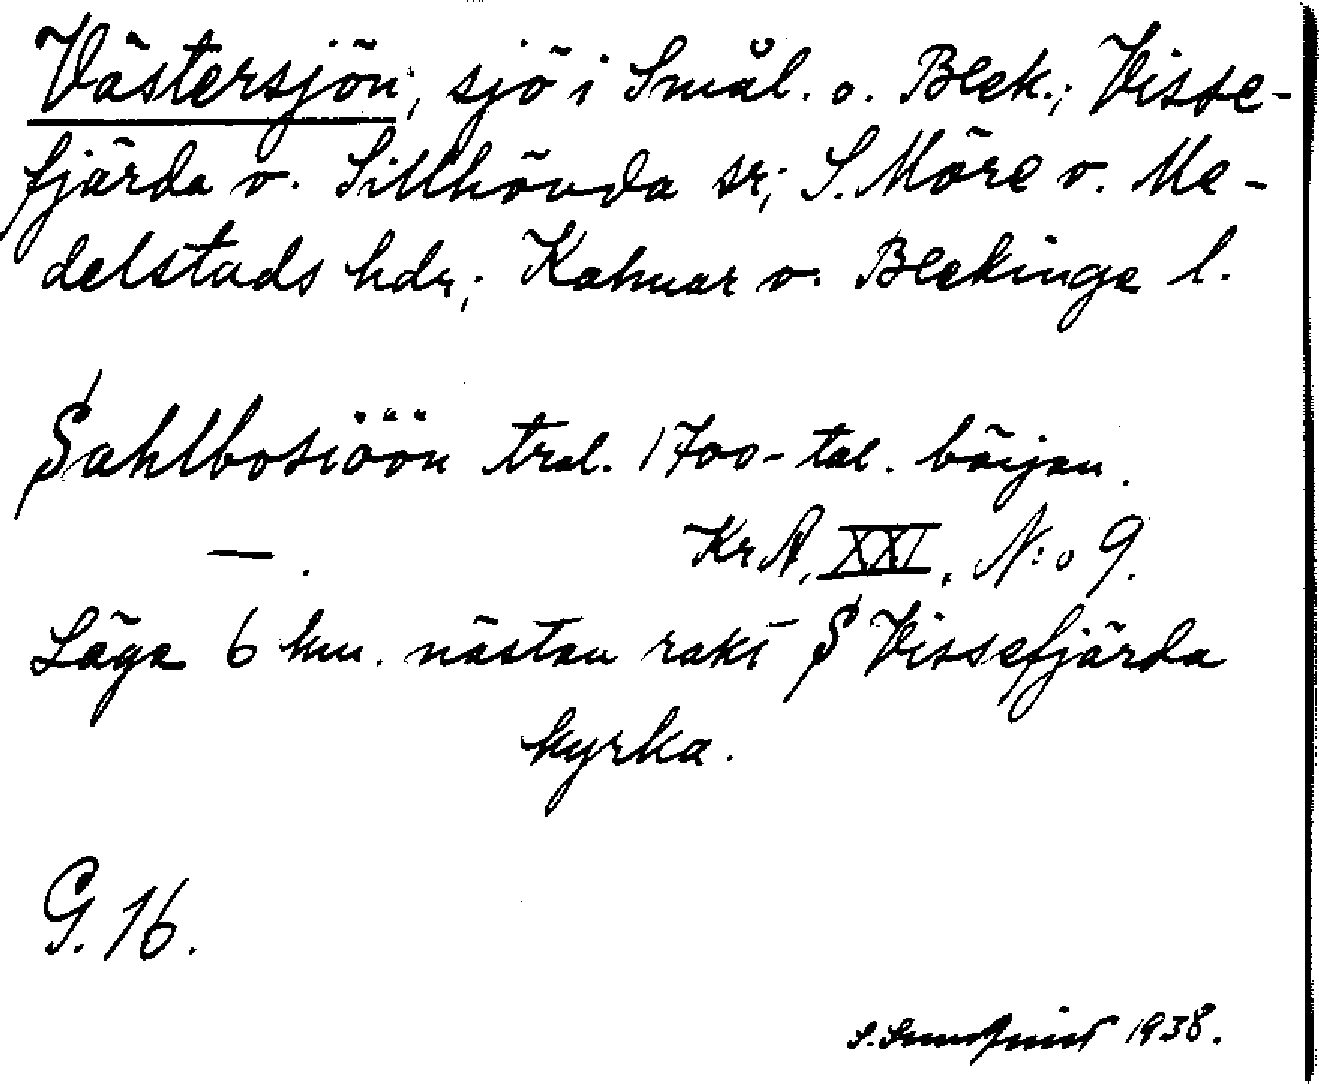 Västersjön; sjö i Smål. o. Blek.; Visse-
fjärda o. Sillhövda sr; S. Möre o. Me-
delstads hdr; Kalmar o. Blekinge l.
Sahlbosiöön trol. 1700-tal. början.
—. KrA, XXI, N:o 9.
Läge 6 km. nästan rakt S Vissefjärda
kyrka.
G. 16.
S. 1938.